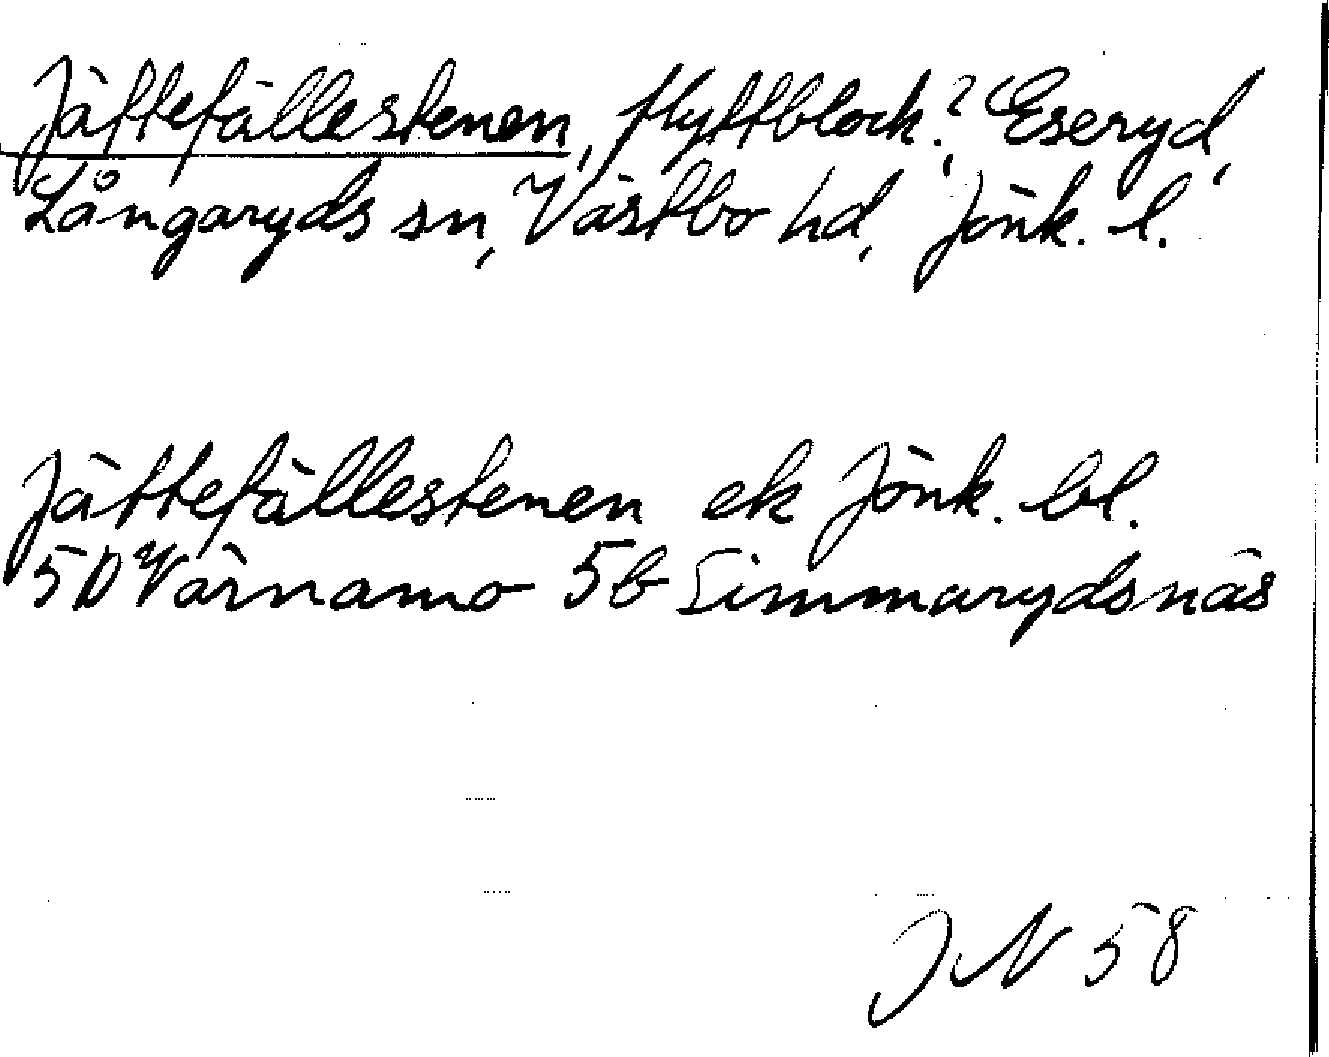 Jättefällestenen, flyttblock?, Eseryd,
Långaryds sn, Västbo hd, Jönk. l.
Jättefällestenen ek Jönk. bl.
5D Värnamo 5b Simmarydsnäs
JN 58